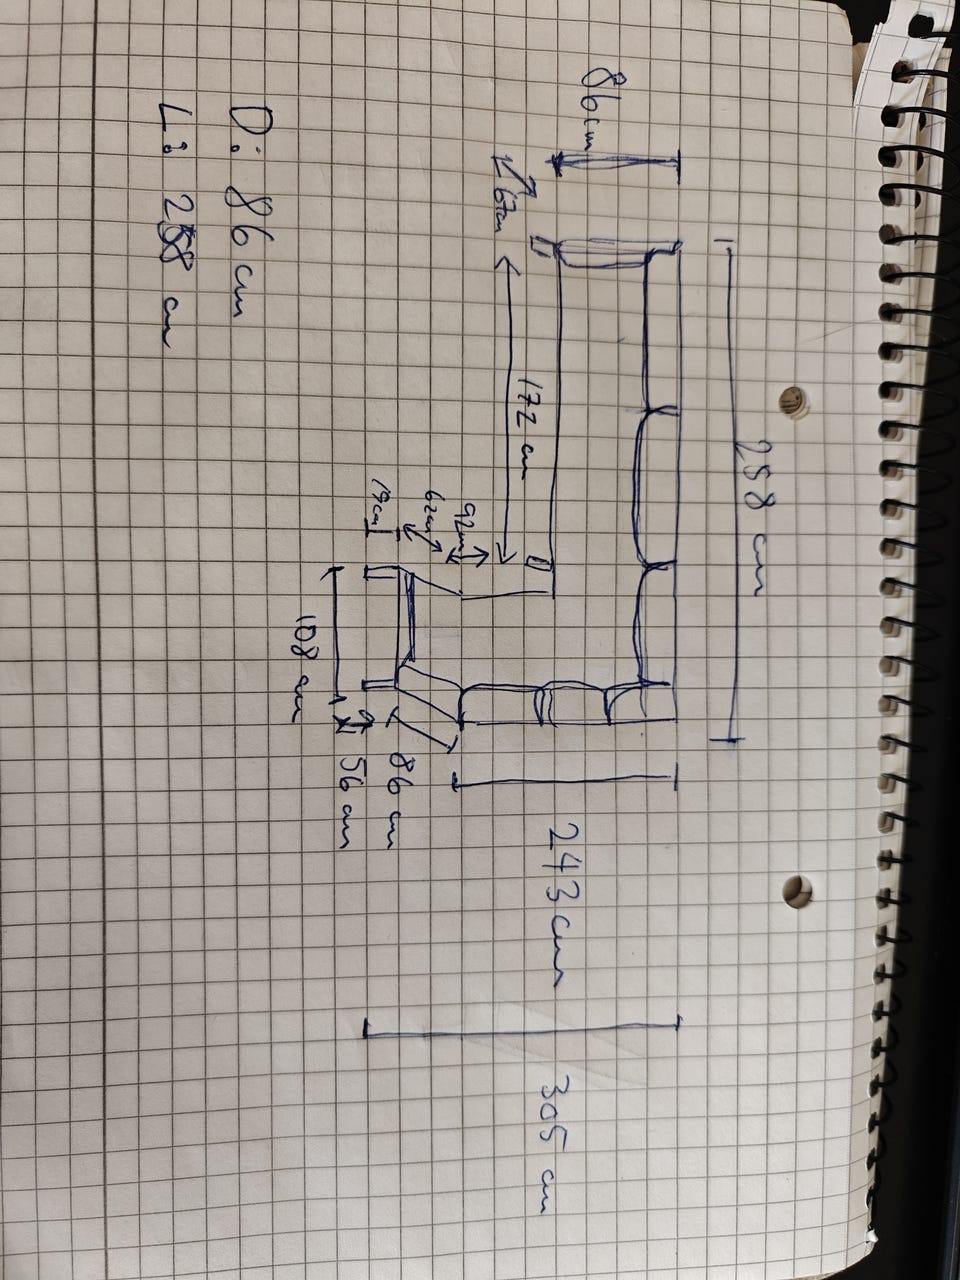 258 cm
86 cm
67cm
172 cm
92cm
62cm
19cm
108 cm
86 cm
56 cm
243 cm
305 cm
D: 86 cm
L: 258 cm